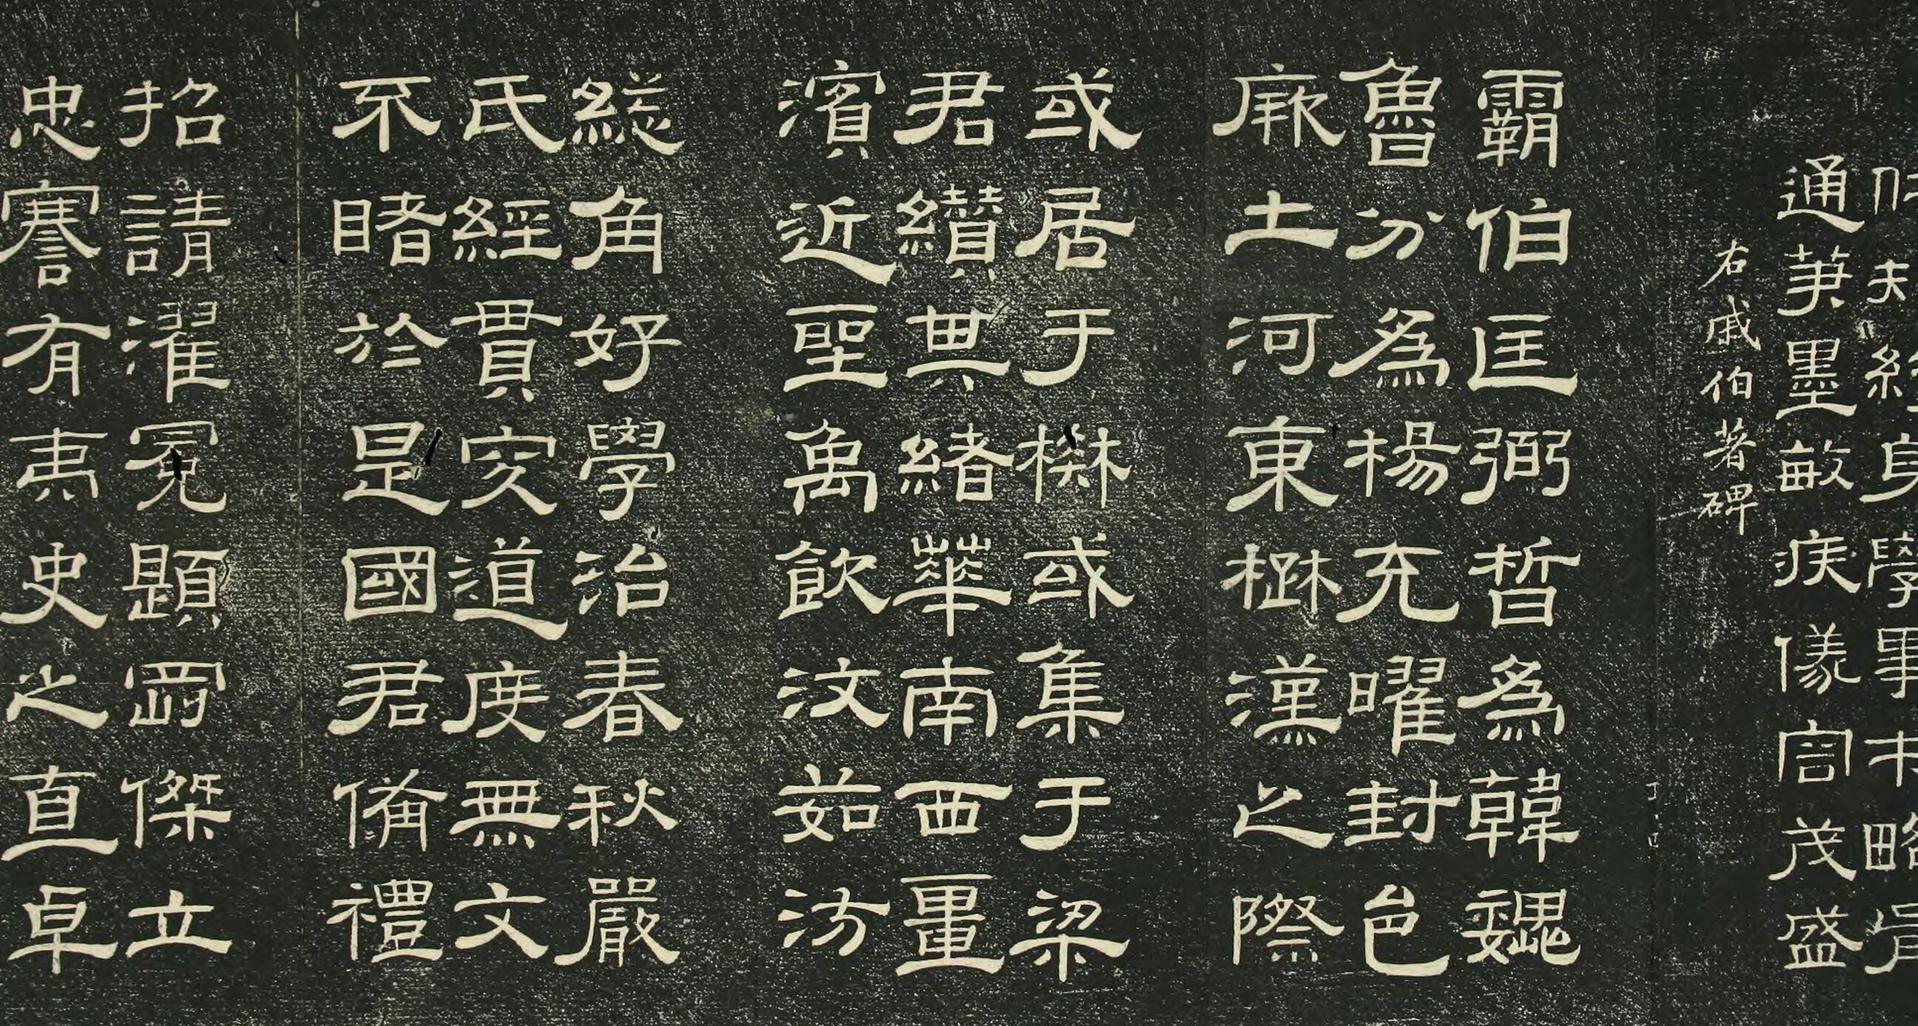 夫 身學事 略
通 墨敏疾儀容茂盛
右戚伯著碑
霸伯匡弼晢為韓魏
魯分為楊充曜封邑
厥土河東楚漢之際
或居于楚或集于梁
君纘其緒華南西畺
濱近聖禹飲汶茹汸
緫角好學治春秋嚴
氏經貫究道度無文
不睹於是國君備禮
招請濯冕題剛傑立
忠謇有夷史之直卓